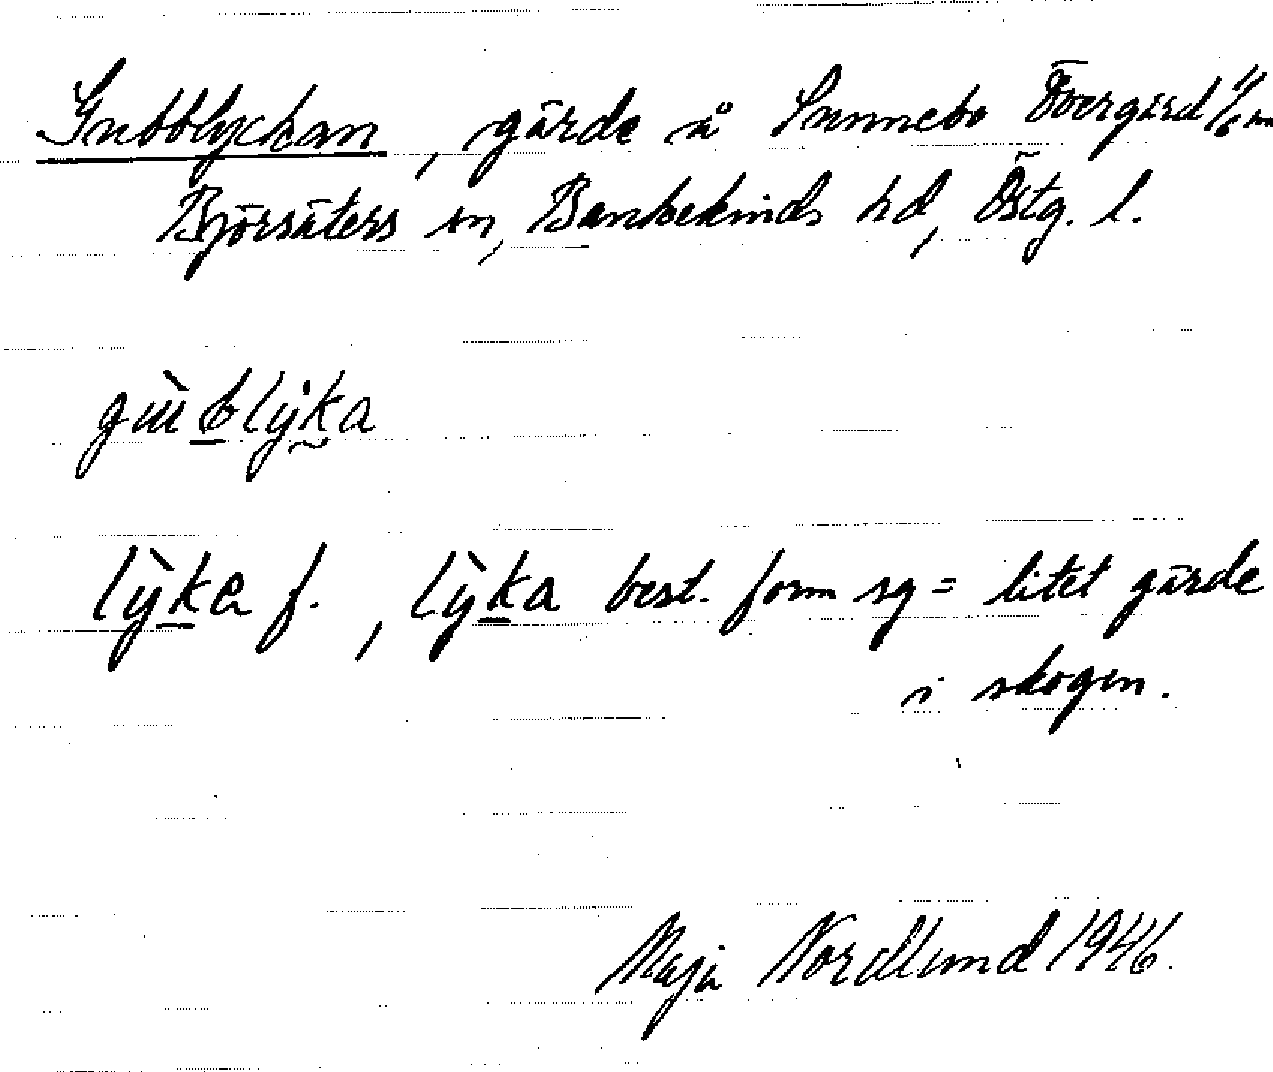 Gubblyckan, gärde å Sunnebo Övergård 4/6 m
Björsäters sn, Bankekinds hd, Östg. l.
gùblyka
lỳka f., lỳka best. form sg = litet gärde
i skogen.
Maja Nordlund 1946.